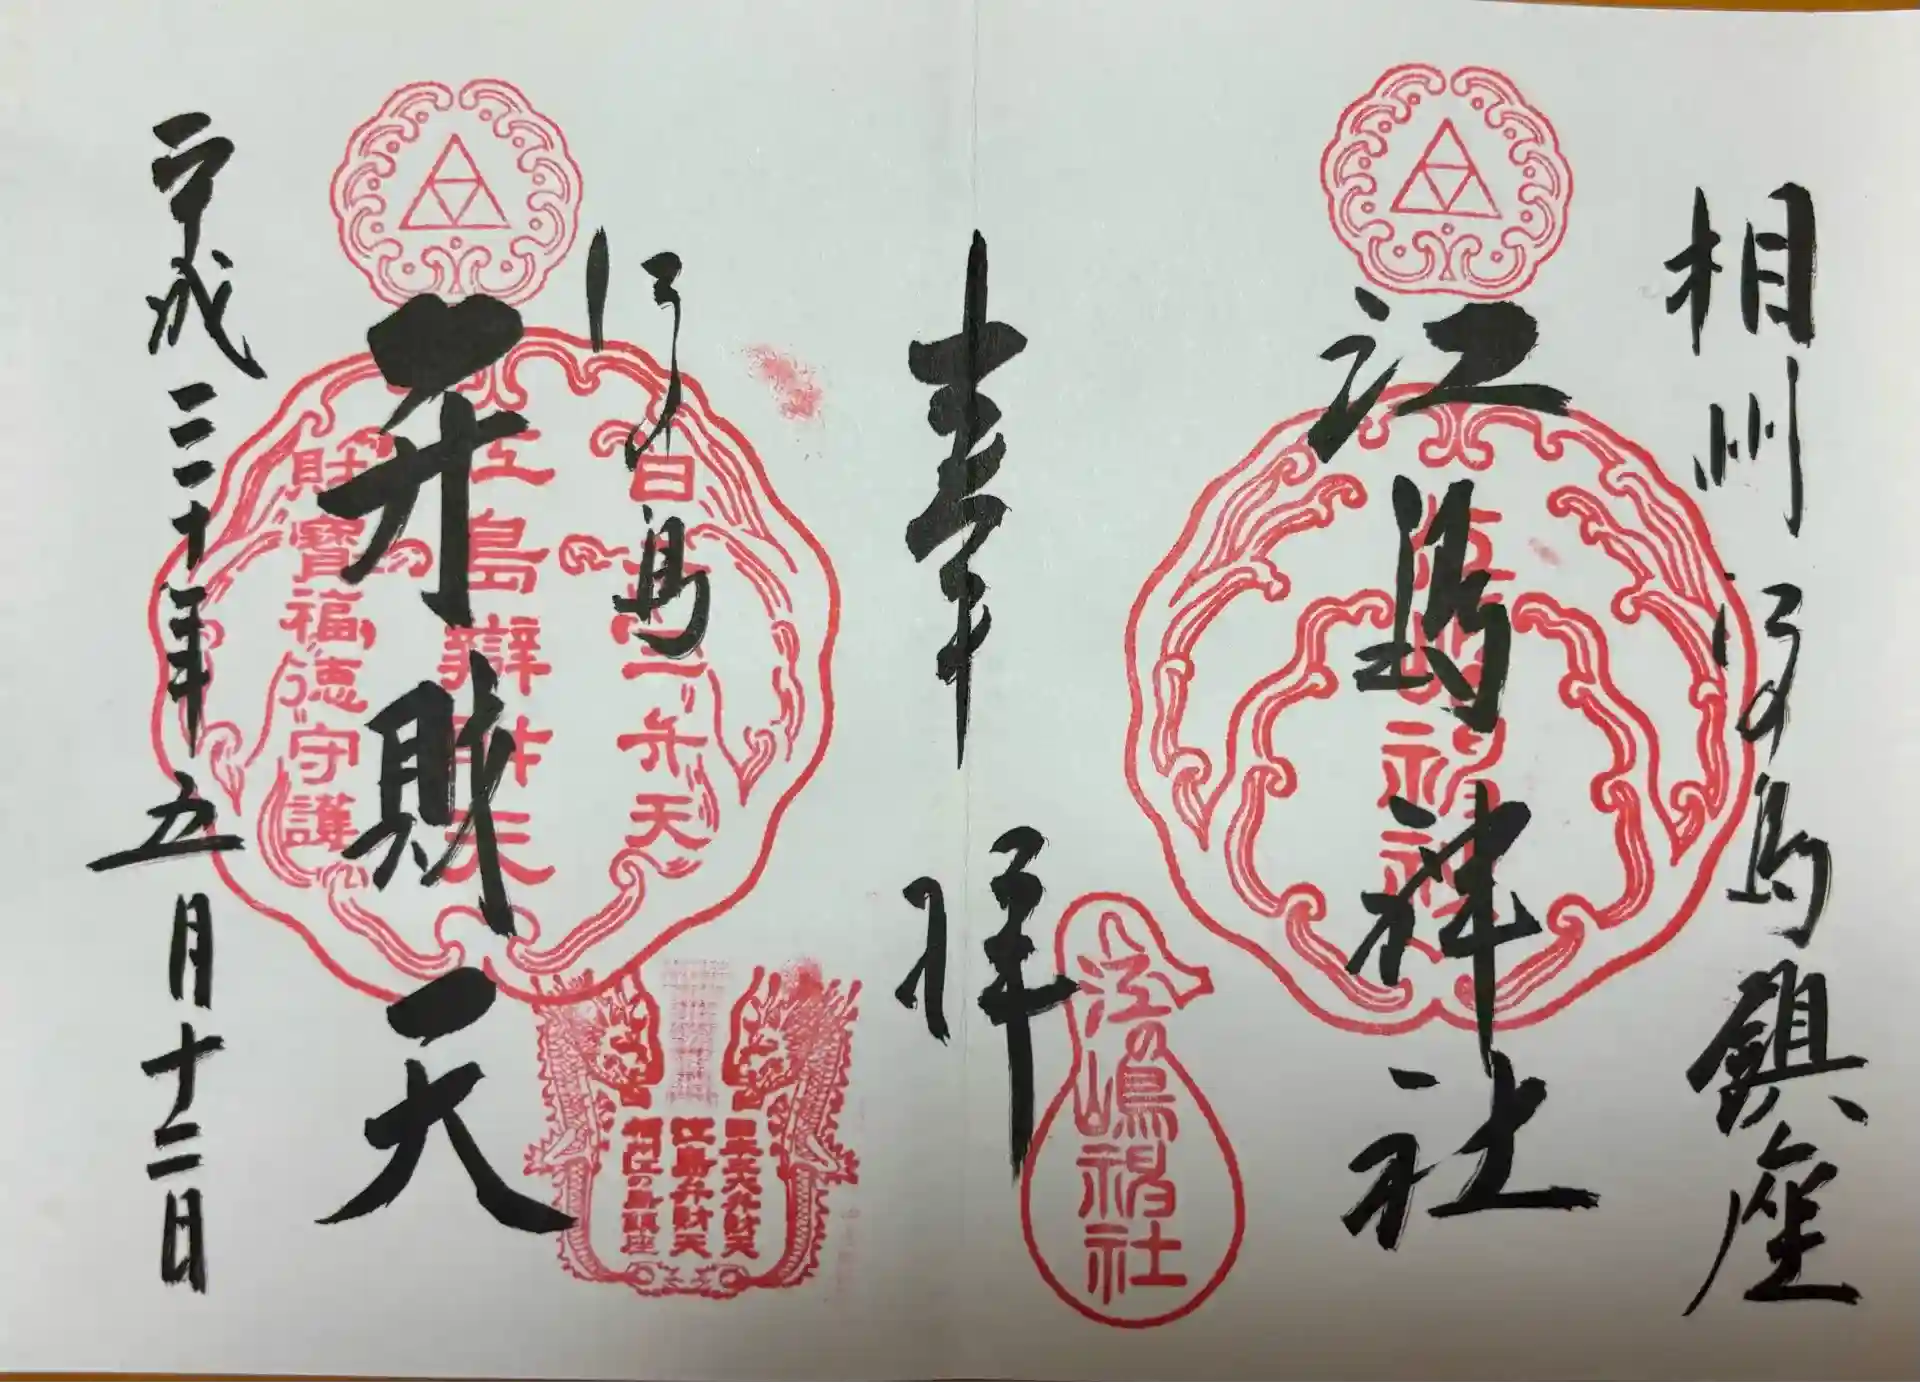 相州江の島鎮座
江島神社
江の嶋神社
奉拝
江ノ島
弁財天
日本三弁天
江島辯財天
財寶福徳守護
日本三大弁財天
江島弁財天
相州江の島鎮座
平成三十年五月十二日